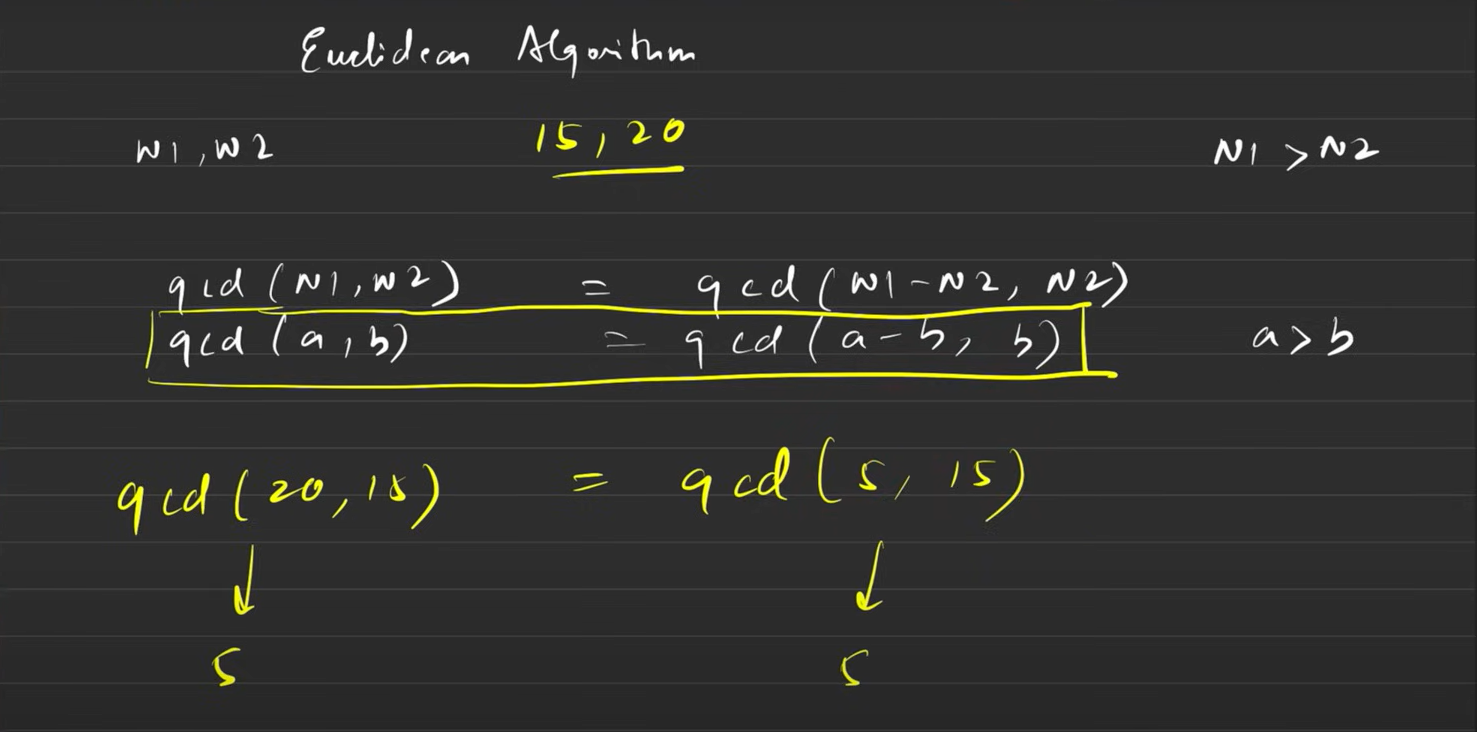 Euclidean Algorithm
N1, N2 15, 20 N1 > N2
gcd (N1, N2) = gcd (N1 - N2, N2)
gcd (a, b) = gcd (a - b, b) a > b
gcd (20, 15) = gcd (5, 15)
↓ ↓
5 5